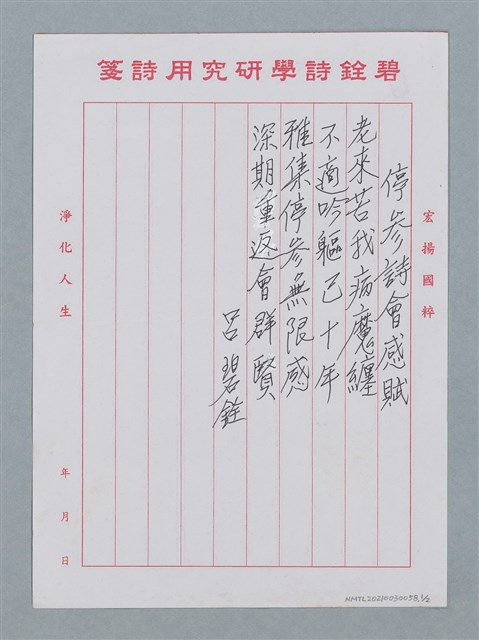 碧銓詩學研究用詩箋
宏揚國粹
停參詩會感賦
老來苦我病魔纏
不適吟軀已十年
雅集停參無限感
深期重返會群賢
呂碧銓
淨化人生
年月日
NMTL20210030058,1/2